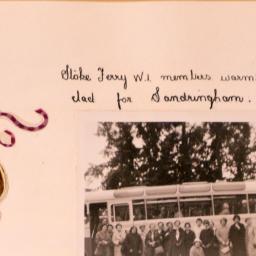 Stoke Ferry W.I. members warm
clad for Sandringham.